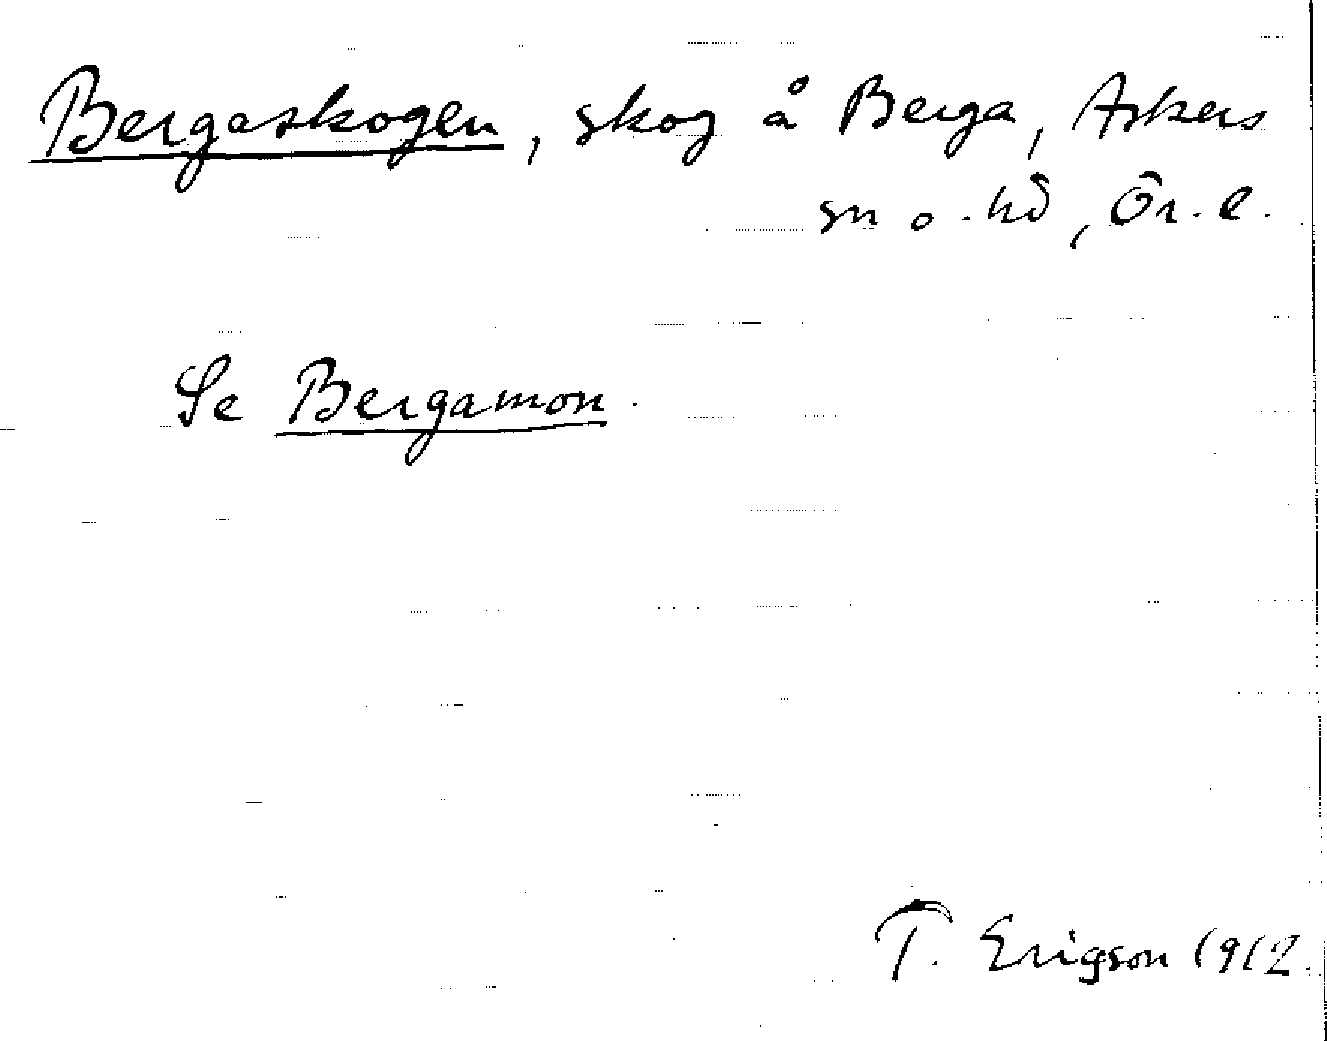 Bergaskogen, skog å Berga, Askers
sn o. hd, Ör. l.
Se Bergamon.
T. Ericsson 1912.